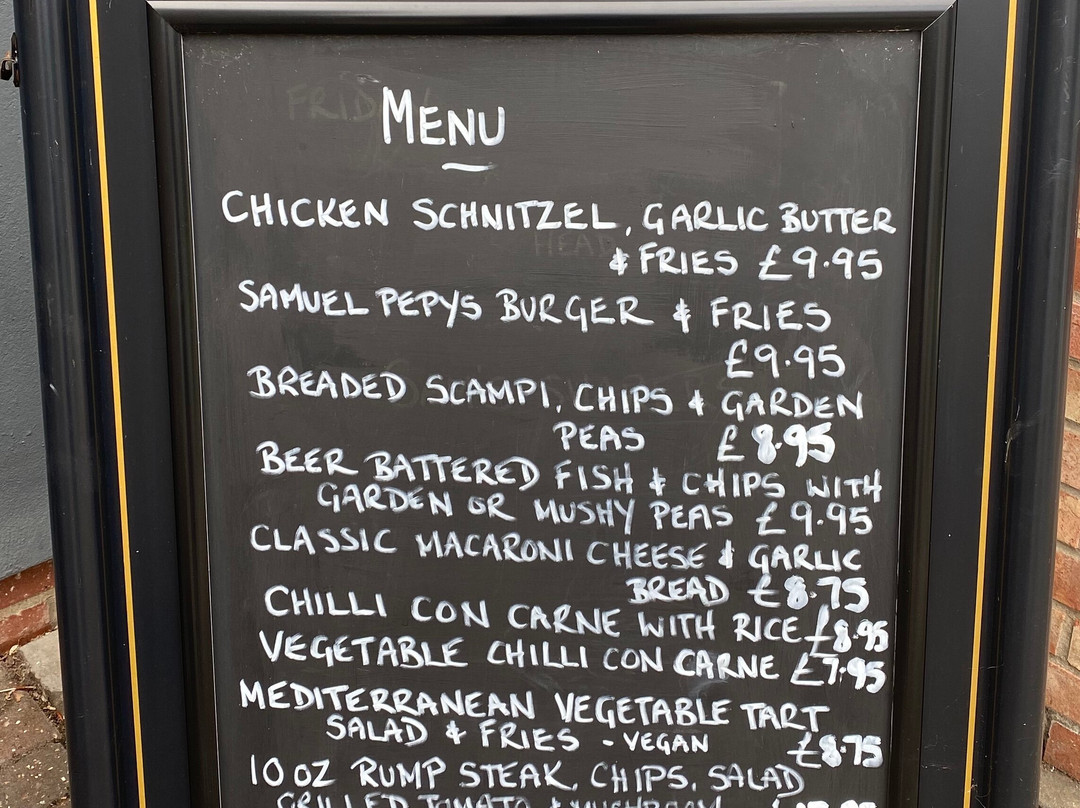 MENU
CHICKEN SCHNITZEL, GARLIC BUTTER
& FRIES £9.95
SAMUEL PEPYS BURGER & FRIES
£9.95
BREADED SCAMPI, CHIPS & GARDEN
PEAS £8.95
BEER BATTERED FISH & CHIPS WITH
GARDEN OR MUSHY PEAS £9.95
CLASSIC MACARONI CHEESE & GARLIC
BREAD £8.75
CHILLI CON CARNE WITH RICE £8.95
VEGETABLE CHILLI CON CARNE £7.95
MEDITERRANEAN VEGETABLE TART
SALAD & FRIES - VEGAN £8.75
10 OZ RUMP STEAK, CHIPS, SALAD
GRILLED TOMATO & MUSHROOM